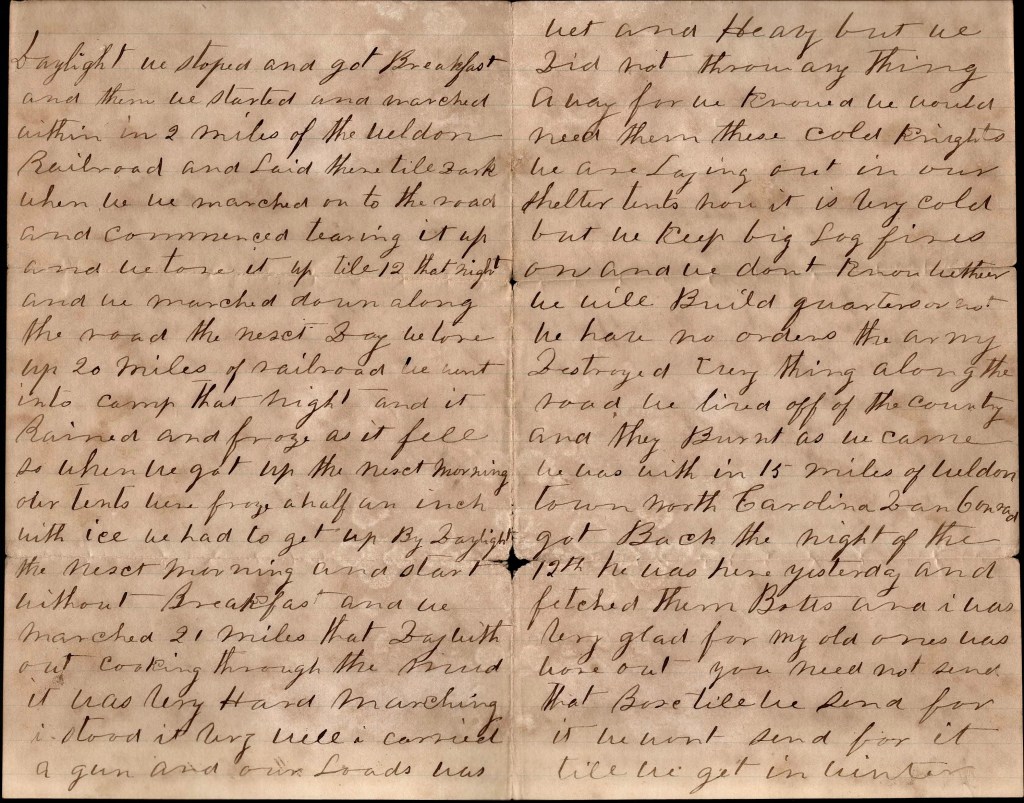 Daylight we stoped and got Breakfast
and them we started and marched
within in 2 miles of the weldon
Railroad and Laid there till Dark
when we we marched on to the road
and commenced tearing it up
and we tore it up till 12 that night
and we marched down along
the road the nesct Day we tore
up 20 miles of railroad we went
into camp that night and it
Rained and froze as it fell
so when we got up the nesct morning
our tents were froze a half an inch
with ice we had to get up By Daylight
the nesct morning and start
without Breakfast and we
marched 21 miles that Day with
out cooking through the mud
it was very Hard marching
i stood it very well i carried
a gun and our Loads was
wet and Heavy but we
Did not throw any thing
away for we knowed we would
need them these cold knights
we are Laying out in our
shelter tents now it is very cold
but we keep big Log fires
on and we dont know wether
we will Build quarters or not
we have no orders the army
Destroyed Every thing along the
road we lived off of the county
and they Burnt as we came
we was with in 15 miles of weldon
town north Carolina Dan Conrad
got Back the night of the
12th he was here yesterday and
fetched them Botts and i was
very glad for my old ones was
wore out you need not send
that Boxe till we send for
it we wont send for it
till we get in winter